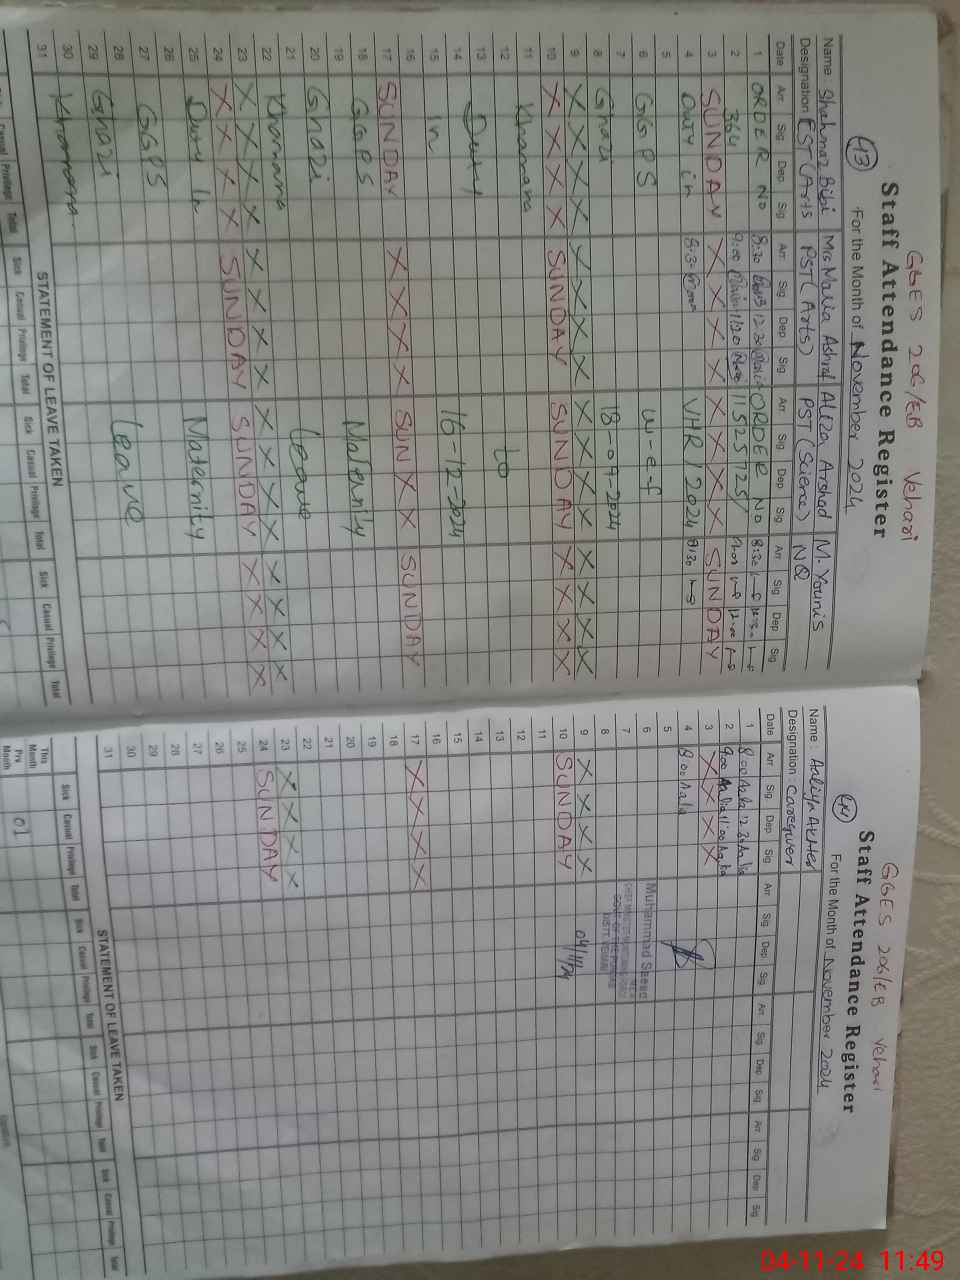 GGES 206/EB Vehari
Staff Attendance Register
(43)
For the Month of November 2024
Name: Shahnaz Bibi Mrs Maria Ashraf Aliza Arshad M. Younis
Designation EST (Arts PST (Arts) PST (Science) NQ
Date Arr Sig Dep Sig Arr Sig Dep Sig Arr Sig Dep Sig Arr Sig Dep Sig
1 ORDER NO 8:30 12:30 ORDER NO 8:30
2 364 9:00 11:20 11525725/ 12:00
3 SUNDAY X X X X X X X X SUNDAY
4 Duty in 8:30 VHR/2024 8:30
5
6 GGPS w-e-f
7
8 Ghazi 18-09-2024
9 X X X X X X X X X X X X X X X X
10 X X X X SUNDAY SUNDAY X X X X
11 Khanana
12 to
13 Duty
14 16-12-2024
15 in
16
17 SUNDAY X X X X SUN X X SUNDAY
18 GGPS Maternity
19
20 Ghazi Leave
21
22 Khanana
23 X X X X X X X X X X X X X X X X
24 X X X X SUNDAY SUNDAY X X X X
25 Duty in Maternity
26
27 GGPS
28 Leave
29 Ghazi
30 Khanana
31
STATEMENT OF LEAVE TAKEN
Sick Casual Privilege Total Sick Casual Privilege Total Sick Casual Privilege Total
Casual Privilege Total
GGES 206/EB Vehari
Staff Attendance Register
(44)
For the Month of November 2024
Name: Aaliya Akhter
Designation: Caregiver
Date Arr Sig Dep Sig Arr Sig Dep Sig Arr Sig Dep Sig Arr Sig Dep Sig
1 8:00 12:30
2 9:00 11:00
3 X X X X
4 8:00
5
6 Muhammad Saeed
7
8
9 X X X X 04/11/24
10 SUNDAY
11
12
13
14
15
16
17 X X X X
18
19
20
21
22
23 X X X X
24 SUNDAY
25
26
27
28
29
30
31
STATEMENT OF LEAVE TAKEN
Sick Casual Privilege Total Sick Casual Privilege Total Sick Casual Privilege Total Sick Casual Privilege Total
This Month
Prv Month 01
04-11-24 11:49